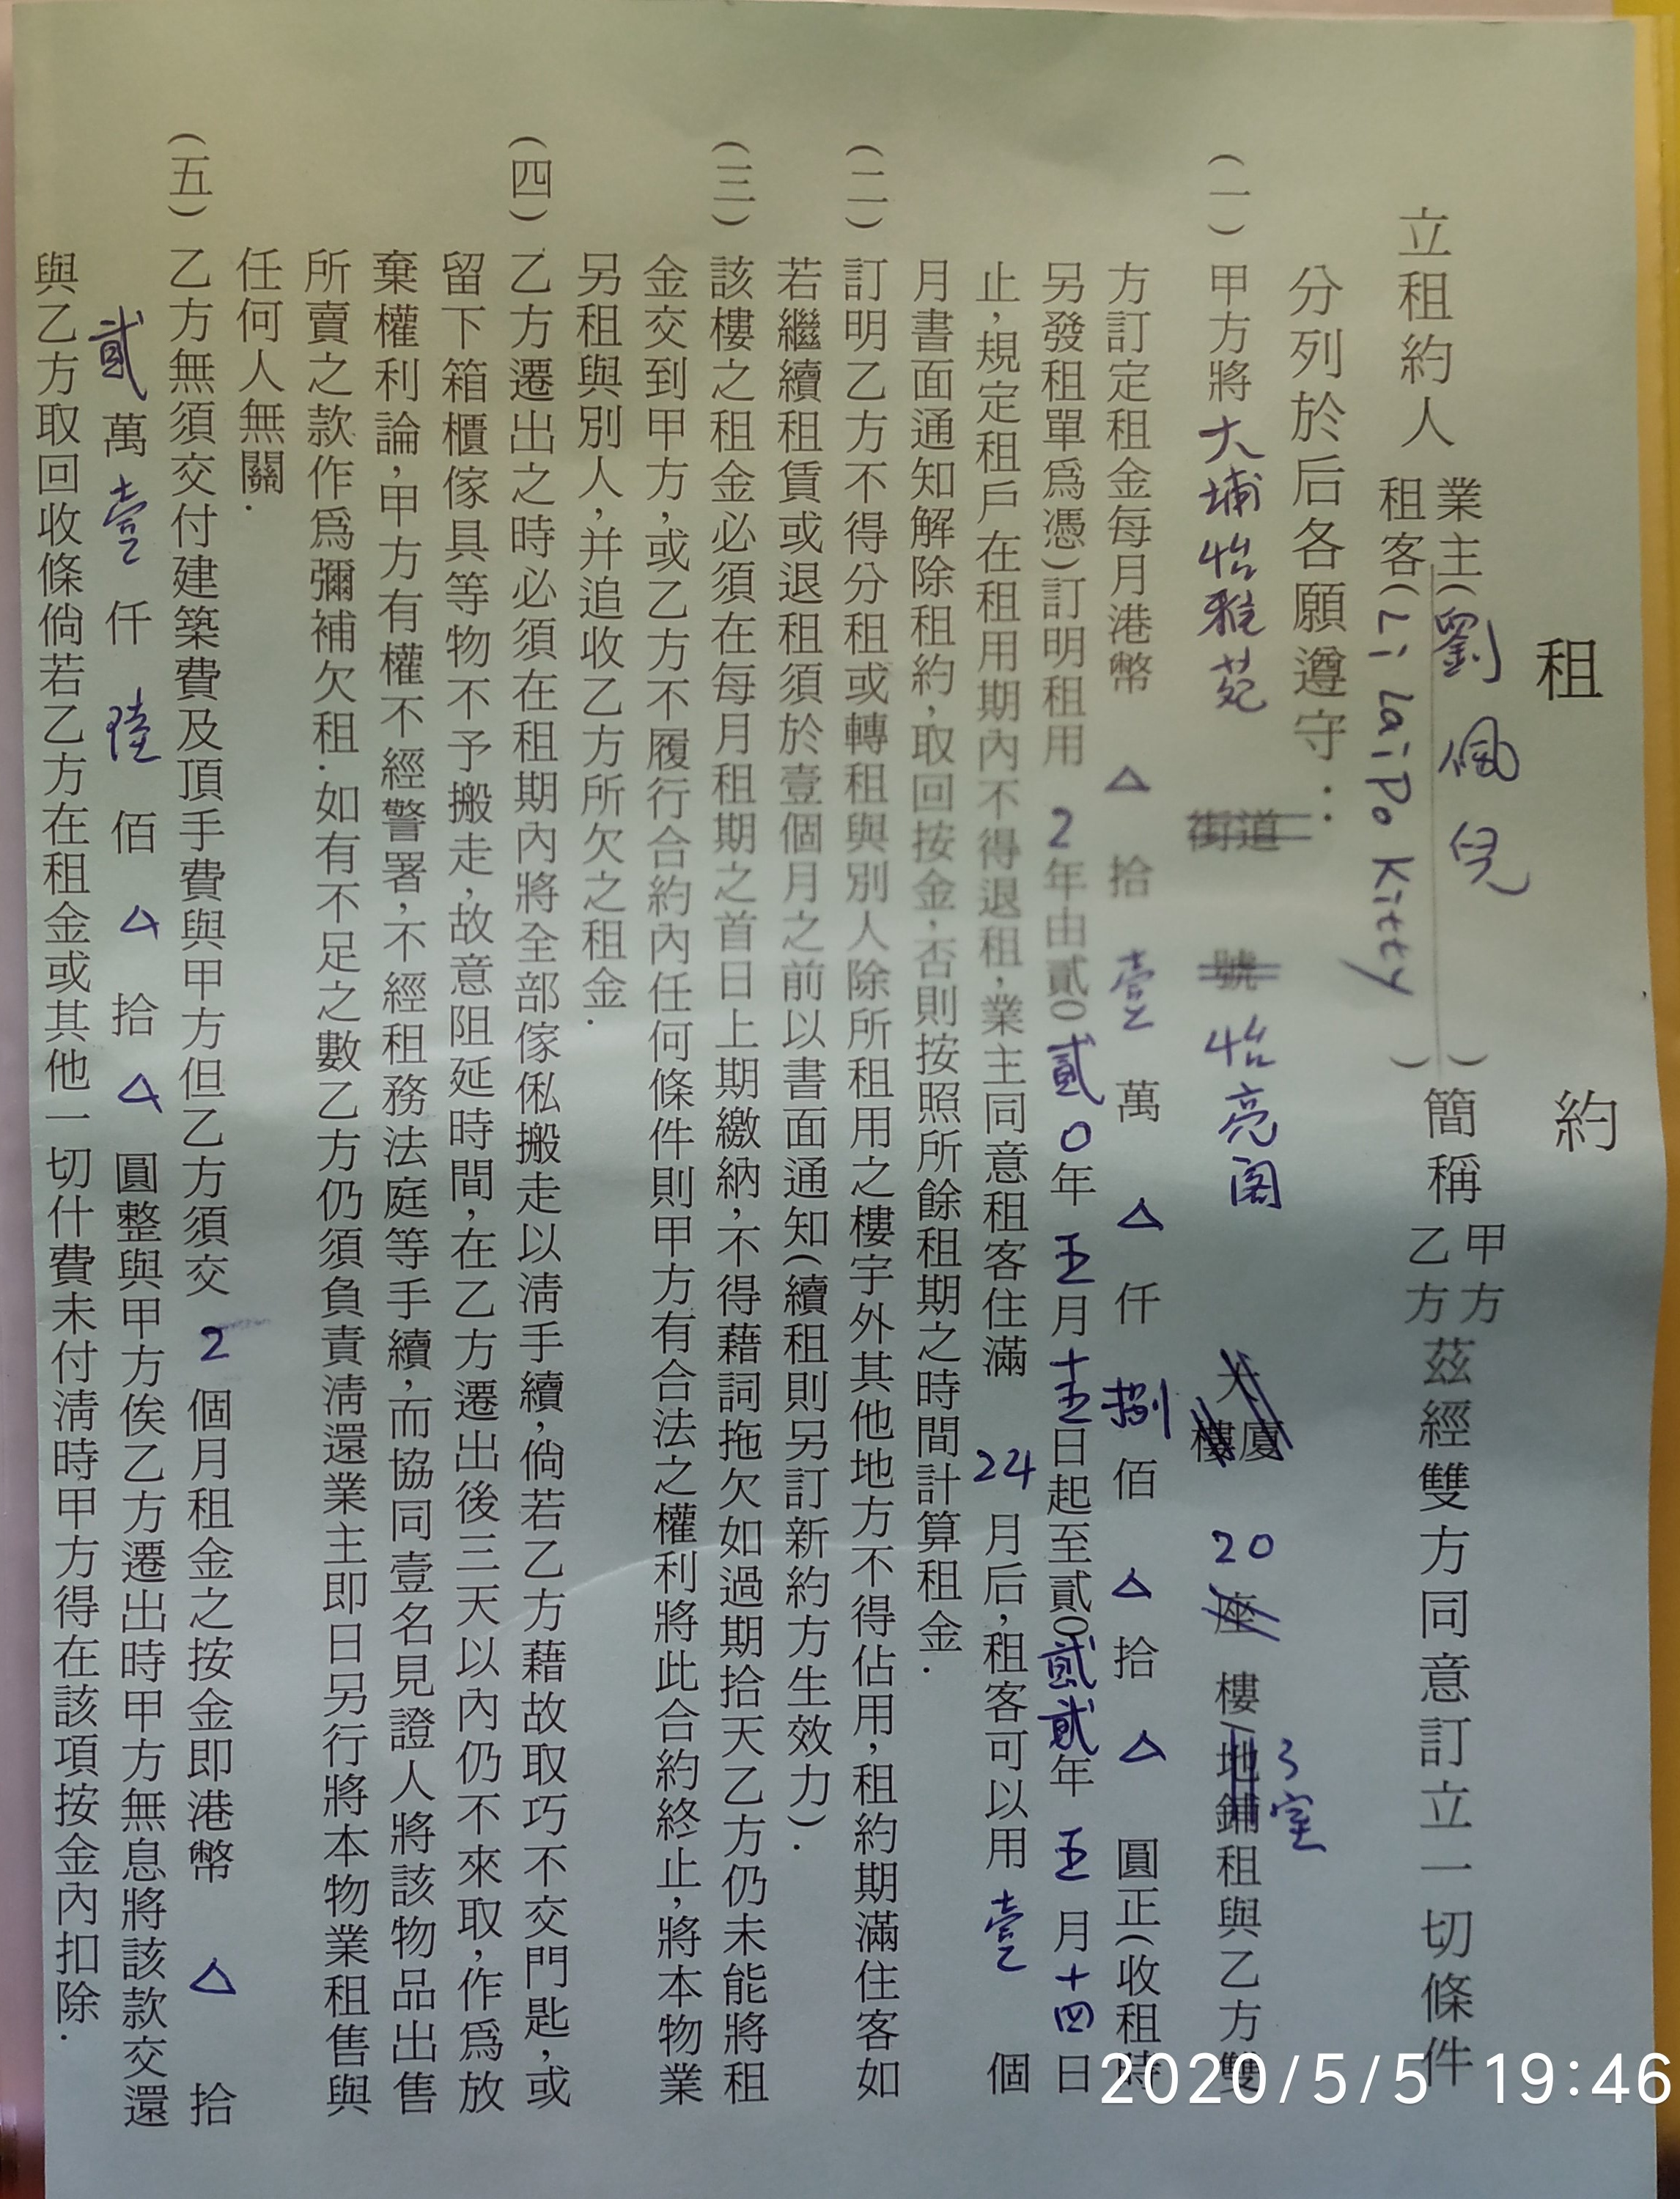 租約
立租約人 業主(劉佩兒)簡稱甲方茲經雙方同意訂立一切條件
租客(Li Lai Po Kitty)乙方
分列於后各願遵守：
(一)甲方將大埔怡雅苑 街道 號 怡亮閣 大廈樓 20 座 樓地鋪 3室 租與乙方雙
方訂定租金每月港幣 △ 拾 壹 萬 △ 仟 捌 佰 △ 拾 △ 圓正(收租時
另發租單爲憑)訂明租用 2 年由貳0貳0年五月十五日起至貳0貳貳年五月十四日
止，規定租戶在租用期內不得退租，業主同意租客住滿 24 月后，租客可以用 壹 個
月書面通知解除租約，取回按金，否則按照所餘租期之時間計算租金．
(二)訂明乙方不得分租或轉租與別人除所租用之樓宇外其他地方不得佔用，租約期滿住客如
若繼續租賃或退租須於壹個月之前以書面通知(續租則另訂新約方生效力)．
(三)該樓之租金必須在每月租期之首日上期繳納，不得藉詞拖欠如過期拾天乙方仍未能將租
金交到甲方，或乙方不履行合約內任何條件則甲方有合法之權利將此合約終止，將本物業
另租與別人，并追收乙方所欠之租金．
(四)乙方遷出之時必須在租期內將全部傢俬搬走以淸手續，倘若乙方藉故取巧不交門匙，或
留下箱櫃傢具等物不予搬走，故意阻延時間，在乙方遷出後三天以內仍不來取，作爲放
棄權利論，甲方有權不經警署，不經租務法庭等手續，而協同壹名見證人將該物品出售
所賣之款作爲彌補欠租．如有不足之數乙方仍須負責淸還業主即日另行將本物業租售與
任何人無關．
(五)乙方無須交付建築費及頂手費與甲方但乙方須交 2 個月租金之按金即港幣 △ 拾
貳 萬 壹 仟 陸 佰 △ 拾 △ 圓整與甲方俟乙方遷出時甲方無息將該款交還
與乙方取回收條倘若乙方在租金或其他一切什費未付淸時甲方得在該項按金內扣除．
2020/5/5 19:46